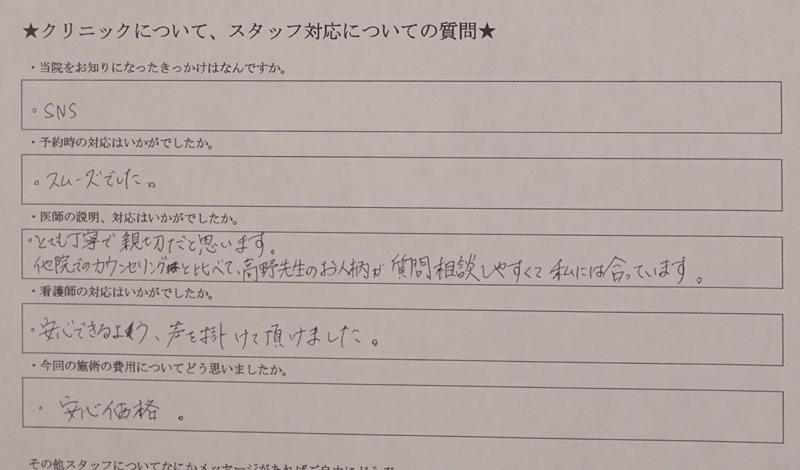 ★クリニックについて、スタッフ対応についての質問★
・当院をお知りになったきっかけはなんですか。
。SNS
・予約時の対応はいかがでしたか。
。スムーズでした。
・医師の説明、対応はいかがでしたか。
・とても丁寧で親切だと思います。
他院でのカウンセリングと比べて、高野先生のお人柄が質問相談しやすくて私には合っています。
・看護師の対応はいかがでしたか。
・安心できるよう、声を掛けて頂けました。
・今回の施術の費用についてどう思いましたか。
・安心価格。
その他スタッフについてなにかメッセージがあればご自由にどうぞ